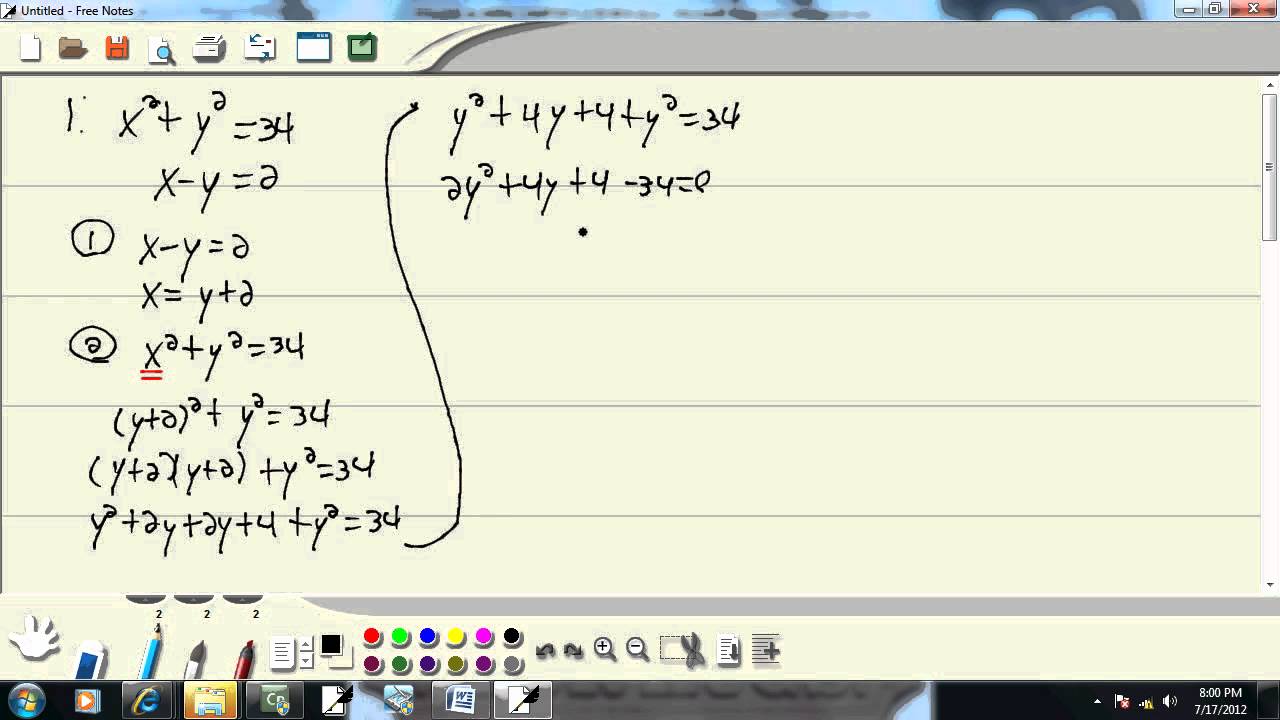 Untitled - Free Notes
1. x² + y² = 34
x - y = 2
① x - y = 2
x = y + 2
② x² + y² = 34
(y+2)² + y² = 34
(y+2)(y+2) + y² = 34
y² + 2y + 2y + 4 + y² = 34
y² + 4y + 4 + y² = 34
2y² + 4y + 4 - 34 = 0
2 2 2
Cp
W
8:00 PM
7/17/2012